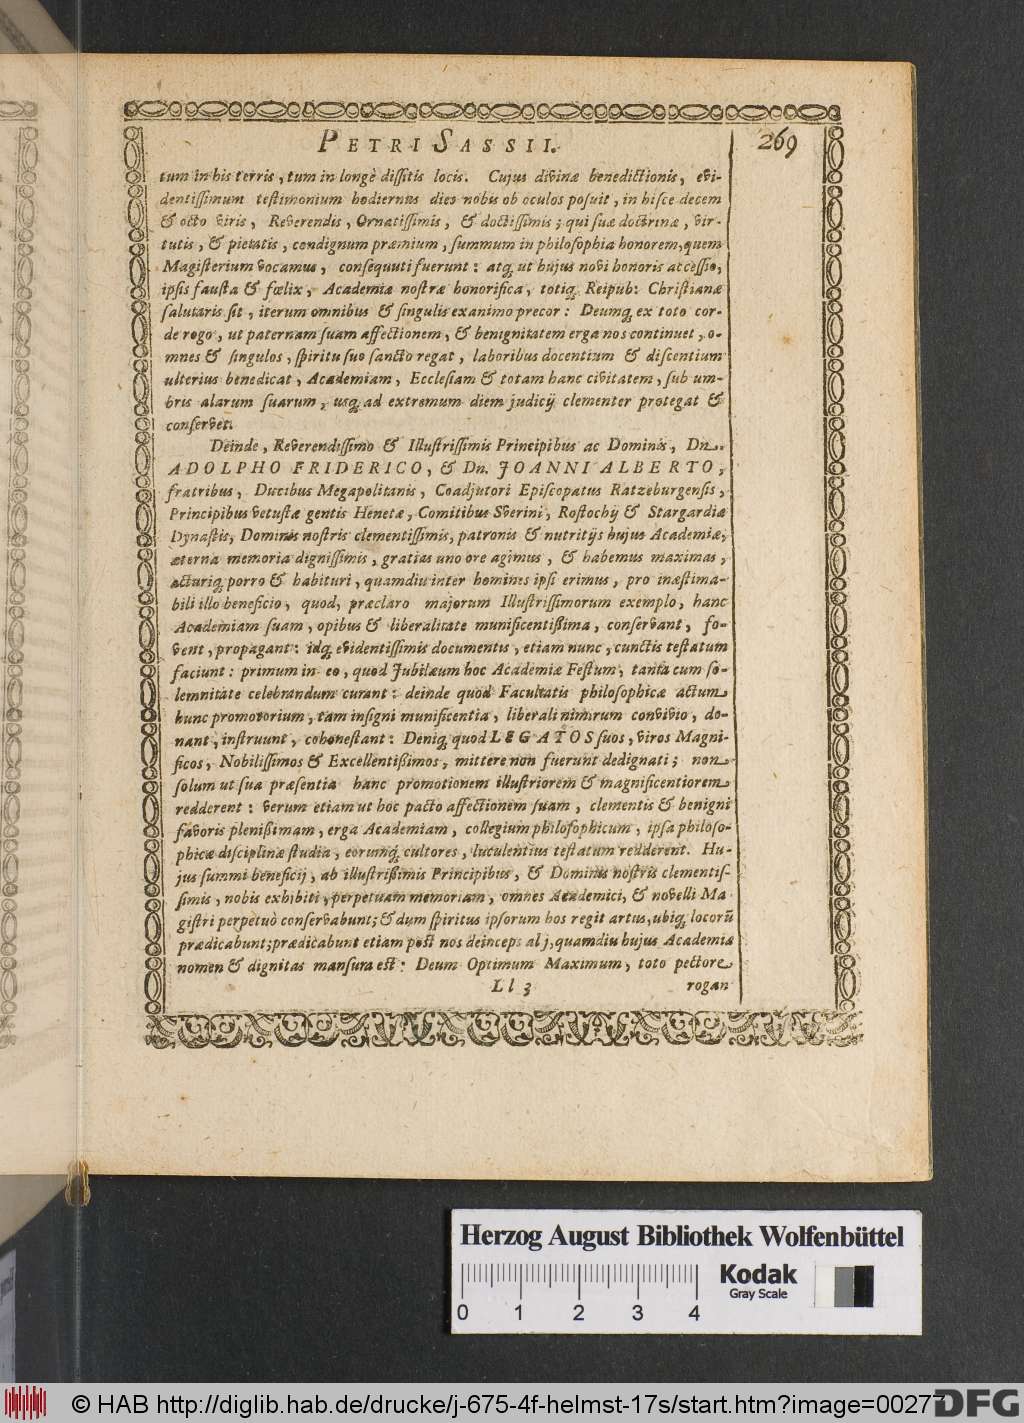 PETRI SASSII.
269
tum in his terris, tum in longè dissitis locis. Cujus divinæ benedictionis, evi-
dentissimum testimonium hodiernus dies nobis ob oculos posuit, in hisce decem
& octo viris, Reverendis, Ornatissimis, & doctissimis; qui suæ doctrinæ, vir-
tutis, & pietatis, condignum præmium, summum in philosophia honorem, quem
Magisterium vocamus, consequuti fuerunt: atq; ut hujus novi honoris accessio,
ipsis fausta & fœlix, Academiæ nostræ honorifica, totiq; Reipub: Christianæ
salutaris sit, iterum omnibus & singulis ex animo precor: Deumq; ex toto cor-
de rogo, ut paternam suam affectionem, & benignitatem erga nos continuet, o-
mnes & singulos, spiritu suo sancto regat, laboribus docentium & discentium
ulterius benedicat, Academiam, Ecclesiam & totam hanc civitatem, sub um-
bris alarum suarum, usq; ad extremum diem judicij clementer protegat &
conservet.
Deinde, Reverendissimo & Illustrissimis Principibus ac Dominis, Dn.
ADOLPHO FRIDERICO, & Dn. JOANNI ALBERTO,
fratribus, Ducibus Megapolitanis, Coadjutori Episcopatus Ratzeburgensis,
Principibus vetustæ gentis Henetæ, Comitibus Sverini, Rostochij & Stargardiæ
Dynastis, Dominis nostris clementissimis, patronis & nutritijs hujus Academiæ,
æterna memoria dignissimis, gratias uno ore agimus, & habemus maximas,
acturiq; porro & habituri, quamdiu inter homines ipsi erimus, pro inæstima-
bili illo beneficio, quod, præclaro majorum Illustrissimorum exemplo, hanc
Academiam suam, opibus & liberalitate munificentißima, conservant, fo-
vent, propagant: idq; evidentissimis documentis, etiam nunc, cunctis testatum
faciunt: primum in eo, quod Jubilæum hoc Academiæ Festum, tanta cum so-
lemnitate celebrandum curant: deinde quòd Facultatis philosophicæ actum
hunc promotorium, tam insigni munificentia, liberali nimirum convivio, do-
nant, instruunt, cohonestant: Deniq; quod LEGATOS suos, viros Magni-
ficos, Nobilissimos & Excellentißimos, mittere non fuerunt dedignati; non
solum ut sua præsentia hanc promotionem illustriorem & magnificentiorem
redderent: verum etiam ut hoc pacto affectionem suam, clementis & benigni
favoris plenißimam, erga Academiam, collegium philosophicum, ipsa philoso-
phicæ disciplinæ studia, eorumq; cultores, luculentius testatum redderent. Hu-
jus summi beneficij, ab illustrißimis Principibus, & Dominis nostris clementis-
simis, nobis exhibiti, perpetuam memoriam, omnes Academici, & novelli Ma
gistri perpetuò conservabunt; & dum spiritus ipsorum hos regit artus, ubiq; locorũ
prædicabunt; prædicabunt etiam post nos deinceps alj, quamdiu hujus Academiæ
nomen & dignitas mansura est: Deum Optimum Maximum, toto pectore
Ll 3 rogan
Herzog August Bibliothek Wolfenbüttel
Kodak
Gray Scale
0 1 2 3 4
© HAB http://diglib.hab.de/drucke/j-675-4f-helmst-17s/start.htm?image=00277
DFG